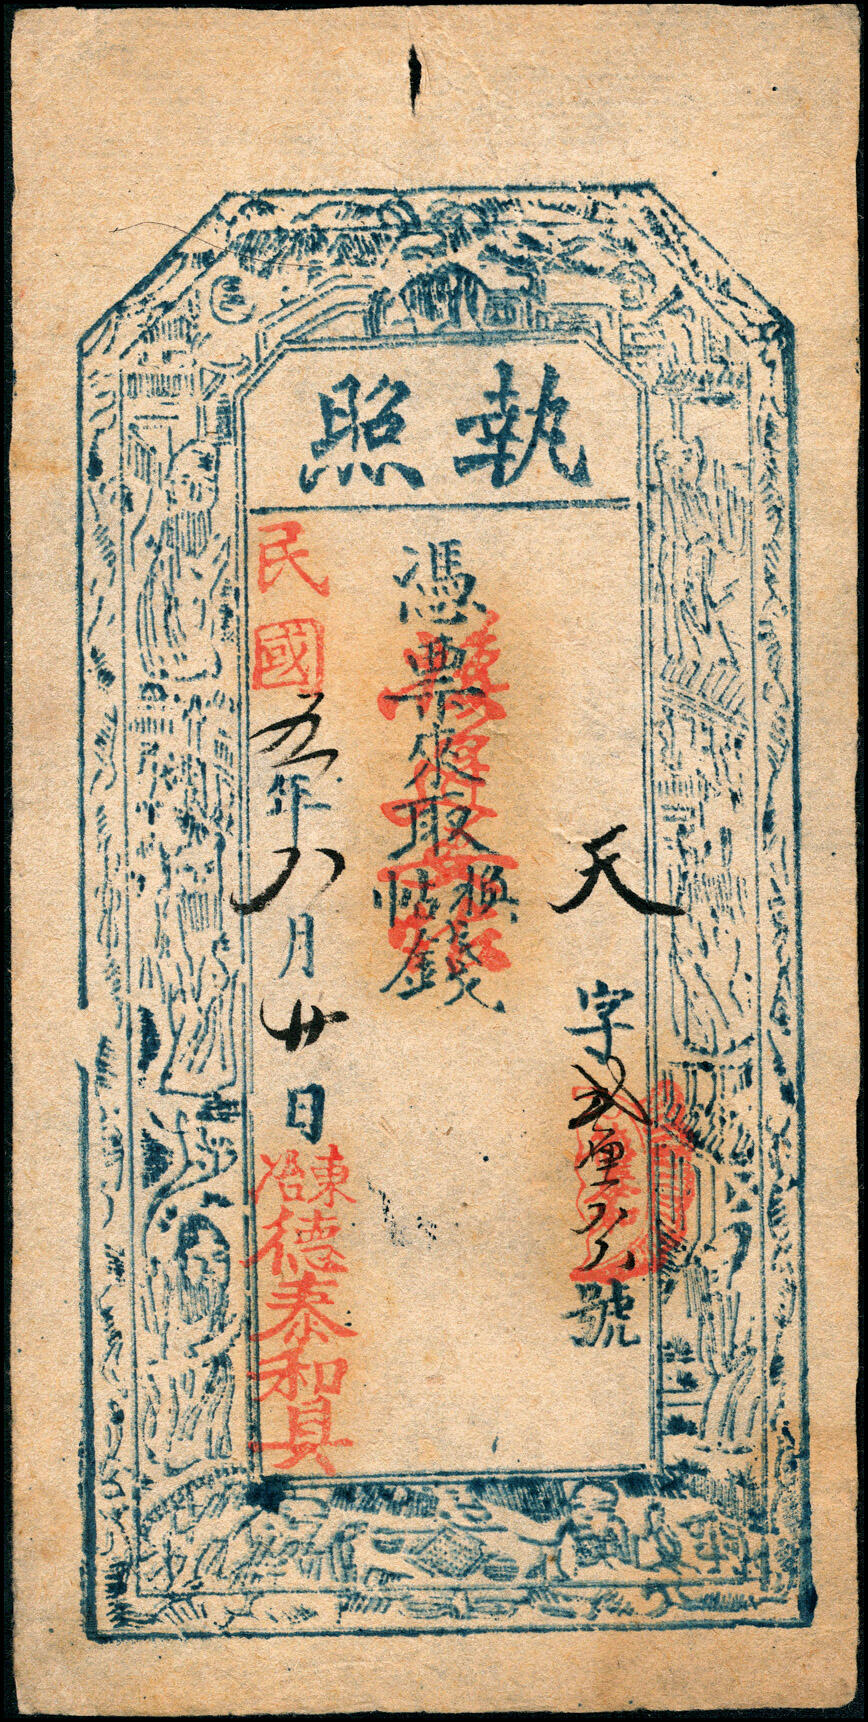 執照
天字弍號
憑票來取換帖錢
民國五年八月廿日東冶德泰和具